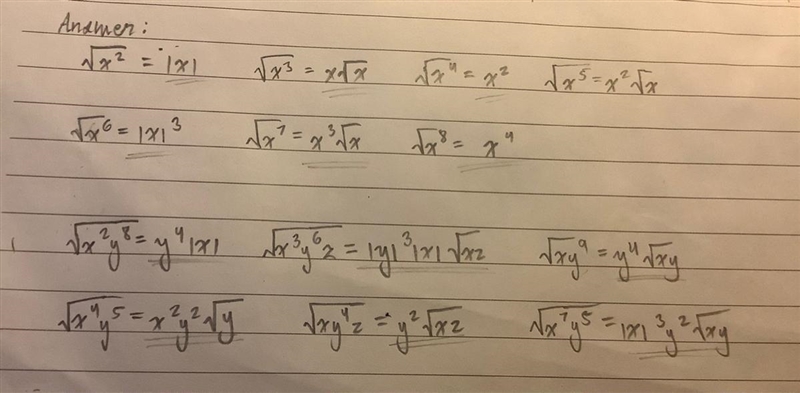 Answer:
√x² = |x| √x³ = x√x √x⁴ = x² √x⁵ = x²√x
√x⁶ = |x|³ √x⁷ = x³√x √x⁸ = x⁴
√x²y⁸ = y⁴|x| √x³y⁶z = |y|³|x|√xz √xy⁹ = y⁴√xy
√x⁴y⁵ = x²y²√y √xy⁴z = y²√xz √x⁷y⁵ = |x|³y²√xy